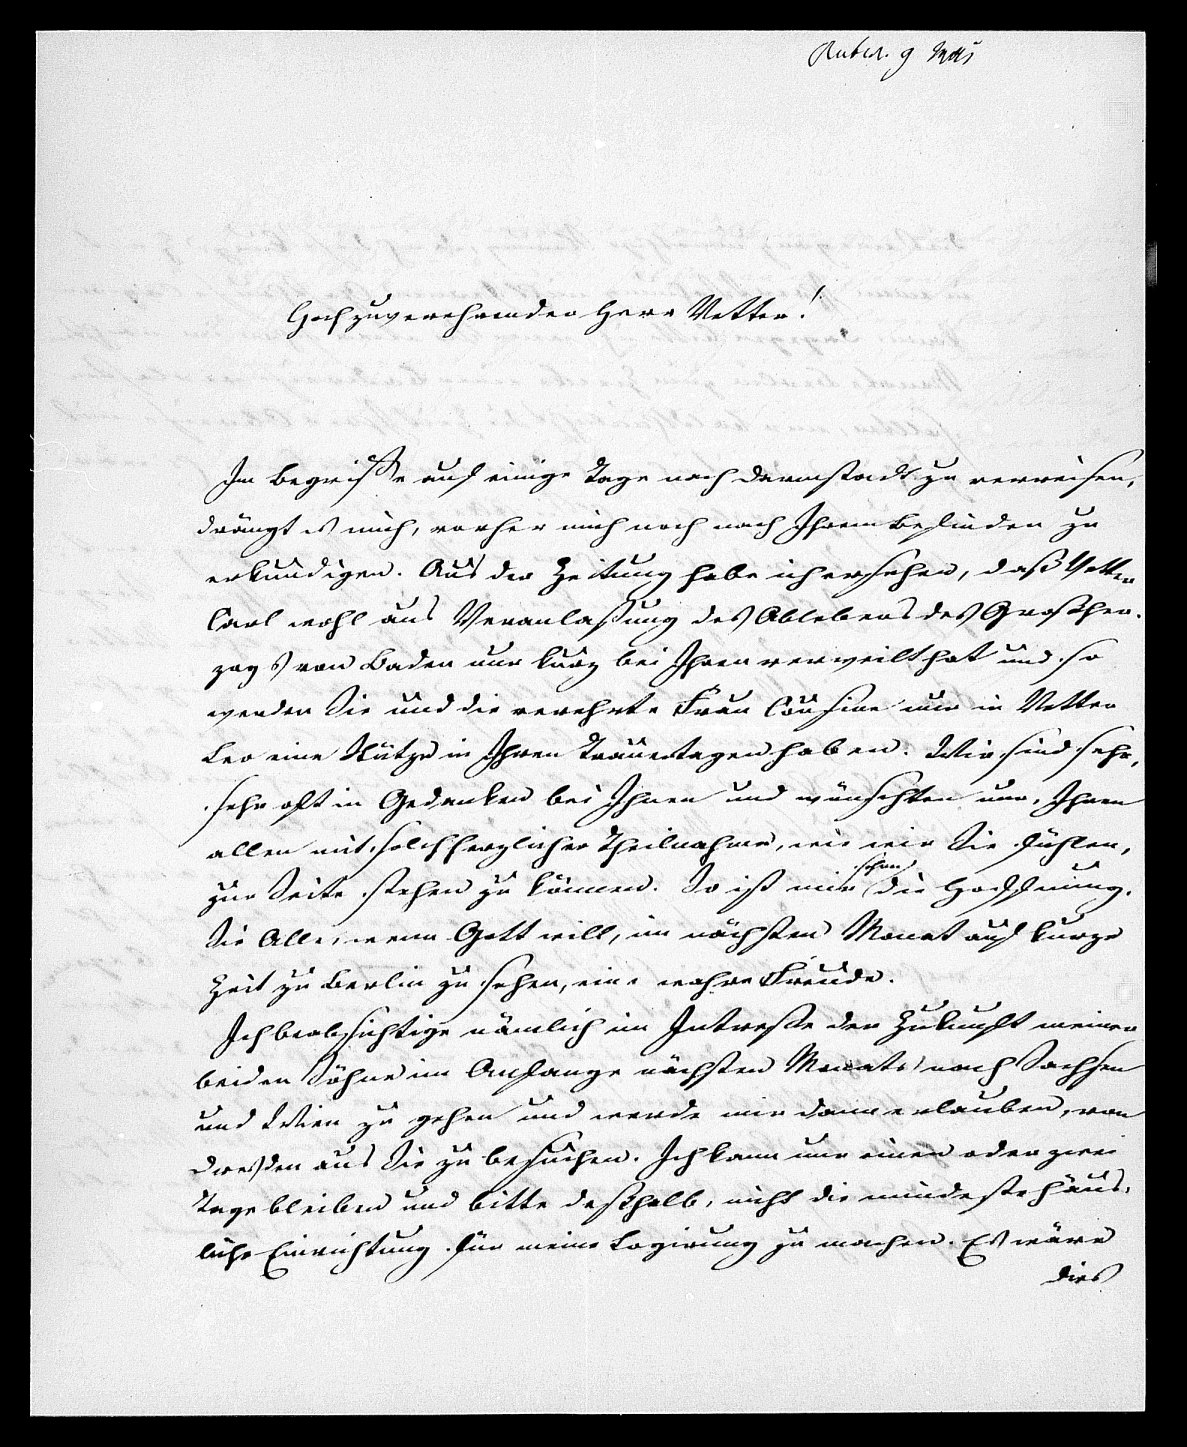 Hochzuverehrender Herr Vetter!
Im Begriffe auf einige Tage nach Darmstadt zu verreisen,
drängt es mich, vorher mich noch nach Ihrem Befinden zu
erkundigen. Aus der Zeitung habe ich ersehen, daß Vetter
Carl wohl aus Veranlaßung des Ablebens des Großher-
zogs von Baden nur kurz bei Ihnen verweilt hat und so
werden Sie und die verehrte Frau Cousine nur in Vetter
Leo eine Stütze in Ihren Trauertagen haben. Wir sind sehr,
sehr oft in Gedanken bei Ihnen und wünschten nur, Ihnen
allen mit solch herzlicher Theilnahme, wie wir Sie fühlen,
zur Seite stehen zu können. So ist mir schon die Hoffnung,
Sie Alle, wenn Gott will, im nächsten Monat auf kurze
Zeit zu Berlin zu sehen, eine wahre Freude.
Ich beabsichtige nämlich im Intreße der Zukunft meiner
beiden Söhne im Anfange nächsten Monats nach Sachsen
und Wien zu gehen und werde mir dann erlauben, von
Dresden aus Sie zu besuchen. Ich kann nur einen oder zwei
Tage bleiben und bitte deßhalb, nicht die mindeste häus-
liche Einrichtung für meine Logirung zu machen. Es wäre
dies